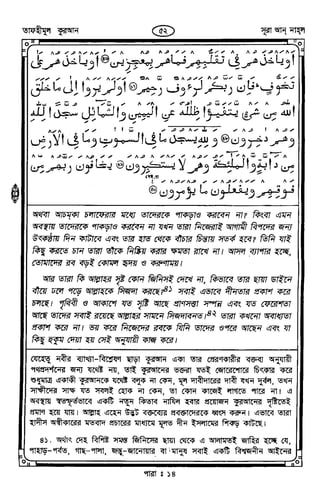 তাফহীমুল কুরআন
৫২
সূরা আন্ নাহল
أَوْ يَأْخُذَهُمْ فِي تَقَلُّبِهِمْ فَمَا هُمْ بِمُعْجِزِينَ ۞ أَوْ يَأْخُذَهُمْ عَلَىٰ
تَخَوُّفٍ فَإِنَّ رَبَّكُمْ لَرَءُوفٌ رَحِيمٌ ۞ أَوَلَمْ يَرَوْا إِلَىٰ مَا خَلَقَ
اللَّهُ مِنْ شَيْءٍ يَتَفَيَّؤُا ظِلَالُهُ عَنِ الْيَمِينِ وَالشَّمَائِلِ سُجَّدًا لِلَّهِ
وَهُمْ دَاخِرُونَ ۞ وَلِلَّهِ يَسْجُدُ مَا فِي السَّمَاوَاتِ وَمَا فِي الْأَرْضِ
مِنْ دَابَّةٍ وَالْمَلَائِكَةُ وَهُمْ لَا يَسْتَكْبِرُونَ ۞ يَخَافُونَ رَبَّهُمْ مِنْ
فَوْقِهِمْ وَيَفْعَلُونَ مَا يُؤْمَرُونَ ۞
অথবা আচমকা চলাফেরার মধ্যে তাদেরকে পাকড়াও করবেন না? কিংবা এমন
অবস্থায় তাদেরকে পাকড়াও করবেন না যখন তারা নিজেরাই আগামী বিপদের জন্য
উৎকণ্ঠায় দিন কাটাবে এবং তার হাত থেকে বাঁচার চিন্তায় সতর্ক হবে? তিনি যাই
কিছু করতে চান তারা তাঁকে নিষ্ক্রিয় করার ক্ষমতা রাখে না। আসল ব্যাপার হচ্ছে,
তোমাদের রব বড়ই কোমল হৃদয় ও করুণাময়।
আর তারা কি আল্লাহর সৃষ্ট কোন জিনিসই দেখে না, কিভাবে তার ছায়া ডাইনে
বাঁয়ে ঢলে পড়ে আল্লাহকে সিজদা করছে? ৪১ সবাই এভাবে দীনতার প্রকাশ করে
চলছে। পৃথিবী ও আকাশে যত সৃষ্টি আছে প্রাণসত্তা সম্পন্ন এবং যত ফেরেশতা
আছে তাদের সবাই রয়েছে আল্লাহর সামনে সিজদাবনত। ৪২ তারা কখনো অবাধ্যতা
প্রকাশ করে না। ভয় করে নিজেদের রবকে যিনি তাদের ওপরে আছেন এবং যা
কিছু হুকুম দেয়া হয় সেই অনুযায়ী কাজ করে।
যেহেতু নবীর ব্যাখ্যা-বিশ্লেষণ ছাড়া কুরআন একা তার প্রেরণকারীর বক্তব্য অনুযায়ী
পথপ্রদর্শনের জন্য যথেষ্ট নয়, তাই কুরআনের ভক্তরা যতই জোরেশোরে চিৎকার করে
শুধুমাত্র একাকী কুরআনকে যথেষ্ট বলুক না কেন, মূল দাবীদারের দাবী যখন দুর্বল, তখন
সাক্ষীদের সাক্ষ্য যত সবলই হোক না কেন, তা কোন কাজেই লাগতে পারে না। এ
অবস্থায় স্বতঃস্ফূর্তভাবে একটি নতুন কিতাব নাযিল হবার প্রয়োজন কুরআনের দৃষ্টিতেই
প্রমাণ হয়ে যায়। আল্লাহ এহেন উদ্ভট বক্তব্যের প্রবক্তাদেরকে ধ্বংস করুন। এভাবে তারা
হাদীস অস্বীকারের মতবাদ প্রচারের মাধ্যমে মূলত দীন ইসলামের শিকড় কাটছে।
৪১. অর্থাৎ দেহ বিশিষ্ট সমস্ত জিনিসের ছায়া থেকে এ আলামতই জাহির হচ্ছে যে,
পাহাড়-পর্বত, গাছ-পালা, জন্তু-জানোয়ার বা মানুষ সবাই একটি বিশ্বজনীন আইনের
পারা : ১৪